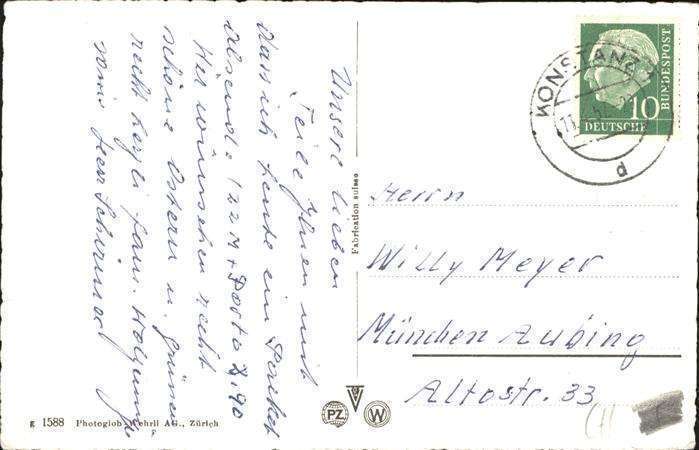 Unsere lieben
Teile Ihnen mit
das ich heute ein Packet
absende 122 M + Porto 2,90
Wir wünschen recht
schöne Ostern u. grüssen
recht herzl. Fam.
sowie Herr
Fabrication suisse
Herrn
Willy Meyer
München Aubing
Altostr. 33
KONSTANZ
d
10
DEUTSCHE
BUNDESPOST
PZ
W
g 1588 Photoglob-Wehrli AG., Zürich